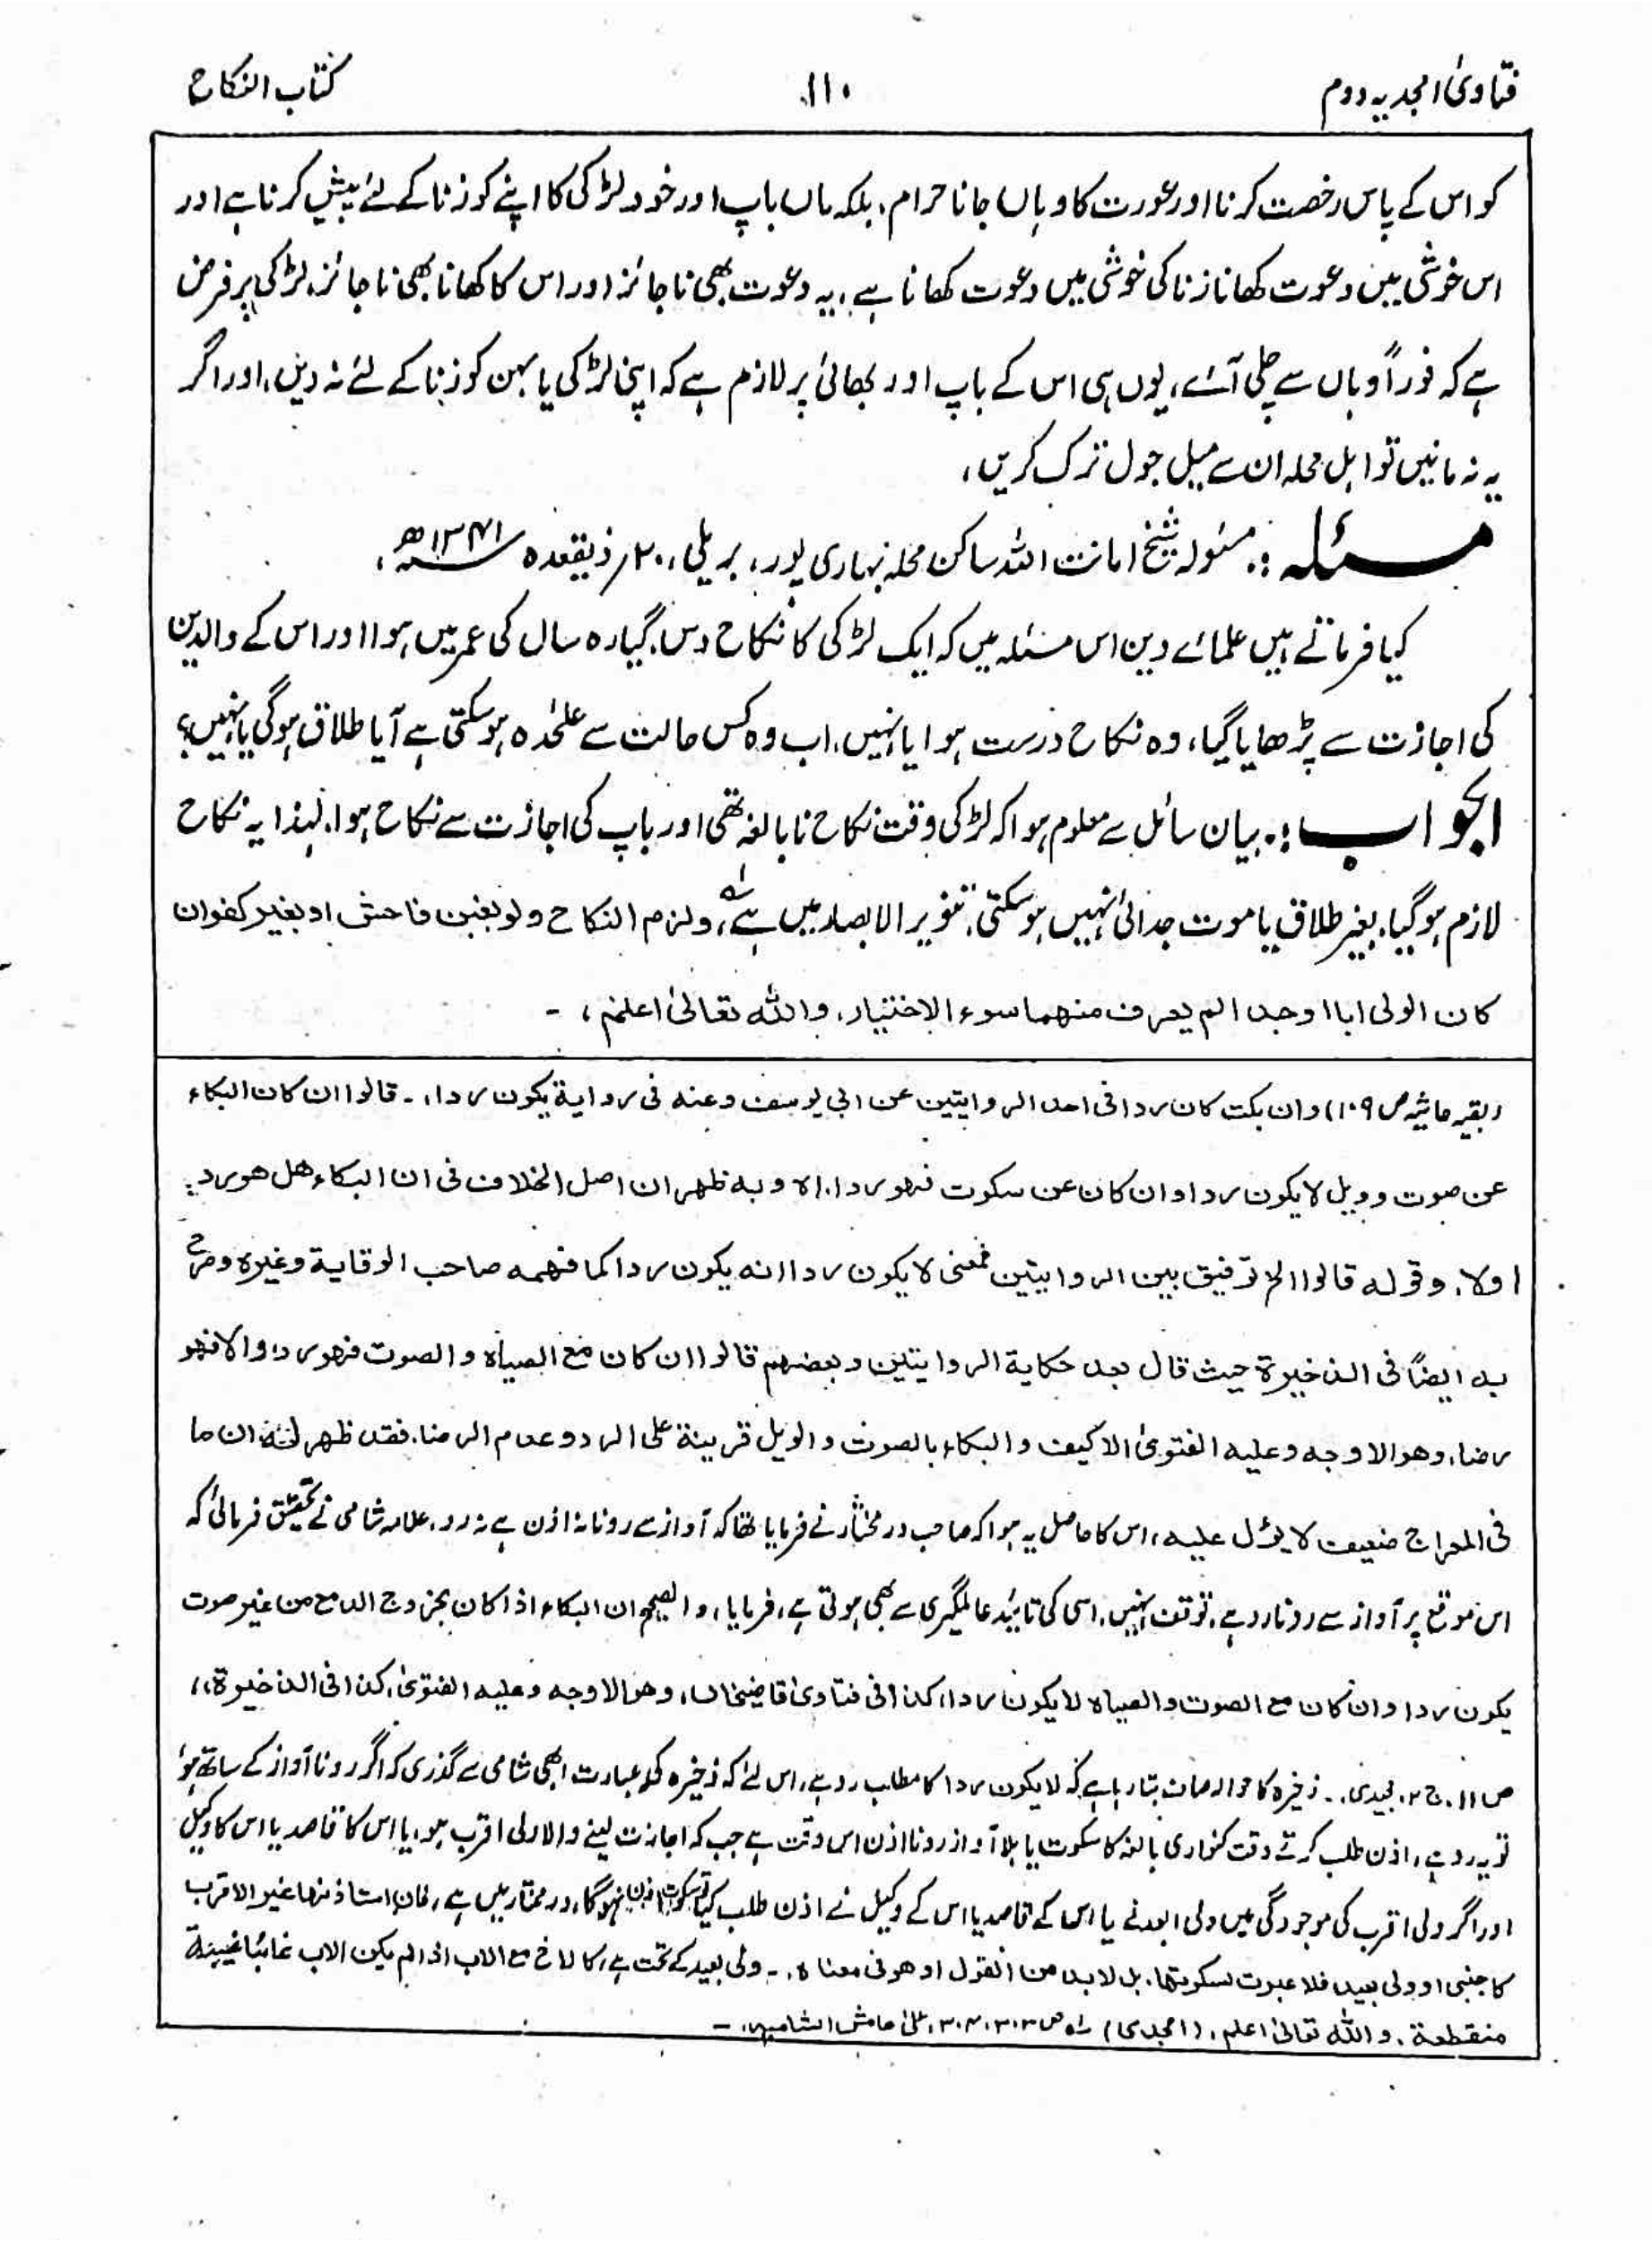 فتاویٰ امجدیہ دوم
۱۱۰
کتاب النکاح
کو اس کے پاس رخصت کرنا اور عورت کا وہاں جانا حرام، بلکہ ماں باپ اور خود لڑکی کا اپنے کو زنا کے لئے پیش کرنا ہے اور
اس خوشی میں دعوت کھانا زنا کی خوشی میں دعوت کھانا ہے، یہ دعوت بھی ناجائز اور اس کا کھانا بھی ناجائز، لڑکی پر فرض
ہے کہ فوراً وہاں سے چلی آئے، یوں ہی اس کے باپ اور بھائی پر لازم ہے کہ اپنی لڑکی یا بہن کو زنا کے لئے نہ دیں، اور اگر
یہ نہ مانیں تو اہل محلہ ان سے میل جول ترک کریں،
مسئلہ :۔ مسئولہ شیخ امانت اللہ ساکن محلہ بہاری پور، بریلی، ۲۰؍ ذیقعدہ ۱۳۴۱ھ،
کیا فرماتے ہیں علمائے دین اس مسئلہ میں کہ ایک لڑکی کا نکاح دس، گیارہ سال کی عمر میں ہوا اور اس کے والدین
کی اجازت سے پڑھایا گیا، وہ نکاح درست ہوا یا نہیں، اب وہ کس حالت سے علٰحدہ ہو سکتی ہے آیا طلاق ہوگی یا نہیں؟
الجواب :۔ بیان سائل سے معلوم ہوا کہ لڑکی وقت نکاح نابالغہ تھی اور باپ کی اجازت سے نکاح ہوا، لہٰذا یہ نکاح
لازم ہو گیا، بغیر طلاق یا موت جدائی نہیں ہو سکتی، تنویر الابصار میں ہے لہ، ولزم النکاح ولو بغبن فاحش او بغیر کفوان
کان الولی ابا او جدا لم یعرف منهما سوء الاختیار، والله تعالیٰ اعلم، ۔
(بقیہ حاشیہ ص ۱۰۹) وان بکت کان ردا فی احد الروایتین عن ابی یوسف وعنه فی روایة یکون ردا، ۔ قالوا ان کان البکاء
عن صوت وویل لا یکون ردا وان کان عن سکوت فهو ردا، اه وبه ظهر ان اصل الخلاف فی ان البکاء هل هو رد
اولا، وقوله قالوا الخ توفیق بین الروایتین فمعنی لا یکون ردا انه یکون ردا کما فهمه صاحب الوقایة وغیره وصرح
به ایضاً فی الذخیرة حیث قال بعد حکایة الروایتین وبعضهم قالوا ان کان مع الصیاه والصوت فهو رد والا فهو
رضا، وهو الاوجه وعلیه الفتویٰ الا کیف والبکاء بالصوت والویل قرینة علی الرد وعدم الرضا، فقد ظهر لک ان ما
فی المعراج ضعیف لا یعول علیه، اس کا حاصل یہ ہوا کہ صاحب در مختار نے فرمایا تھا کہ آواز سے رونا نہ اذن ہے نہ رد، علامہ شامی نے تحقیق فرمائی کہ
اس موقع پر آواز سے رونا رد ہے، توقف نہیں، اسی کی تائید عالمگیری سے بھی ہوتی ہے، فرمایا، والصحیح ان البکاء اذا کان بخروج الدمع من غیر صوت
یکون ردا وان کان مع الصوت والصیاه لا یکون ردا، کذا فی فتاویٰ قاضیخان، وهو الاوجه وعلیه الفتویٰ، کذا فی الذخیرة،،
ص ۱۱، ج ۲، مجیدی، ۔ ذخیرہ کا حوالہ صاف بتا رہا ہے کہ لا یکون ردا کا مطلب رد ہے، اس لئے کہ ذخیرہ کی عبارت ابھی شامی سے گذری کہ اگر رونا آواز کے ساتھ ہو
تو یہ رد ہے، اذن طلب کرتے وقت کنواری بالغہ کا سکوت یا بلا آواز رونا اذن اس وقت ہے جب کہ اجازت لینے والا ولی اقرب ہو، یا اس کا قاصد یا اس کا وکیل
اور اگر ولی اقرب کی موجودگی میں ولی ابعد نے یا اس کے قاصد یا اس کے وکیل نے اذن طلب کیا تو سکوت اذن نہ ہوگا، در مختار میں ہے، فان استاذنها غیر الاقرب
کاجنبی او ولی بعید فلا عبرت لسکوتها، بل لا بد من القول او هو فی معناه، ۔ ولی بعید کے تحت ہے، کالاخ مع الاب اذا لم یکن الاب غائبا غیبة
منقطعة، والله تعالیٰ اعلم، (امجدی) لہ ص ۳۰۳، ۳۰۴، علیٰ هامش الشامیه، ۔